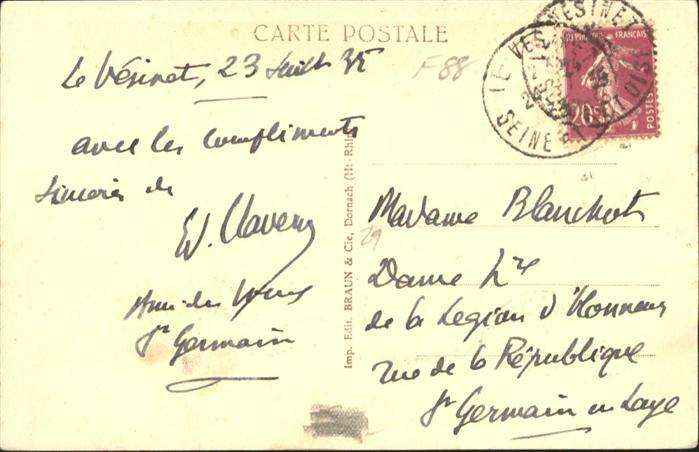 CARTE POSTALE
Le Vésinet, 23 Juillet 35
F 88
avec les compliments
sincères de
W. Clavery
St Germain
Imp. Edit. BRAUN & Cie, Dornach (Ht-Rhin)
29
LE VESINET
SEINE ET OISE
FRANÇAIS
20c
POSTES
Madame Blanchots
Dame Hre
de la Legion d'Honneur
rue de la République
St Germain en Laye